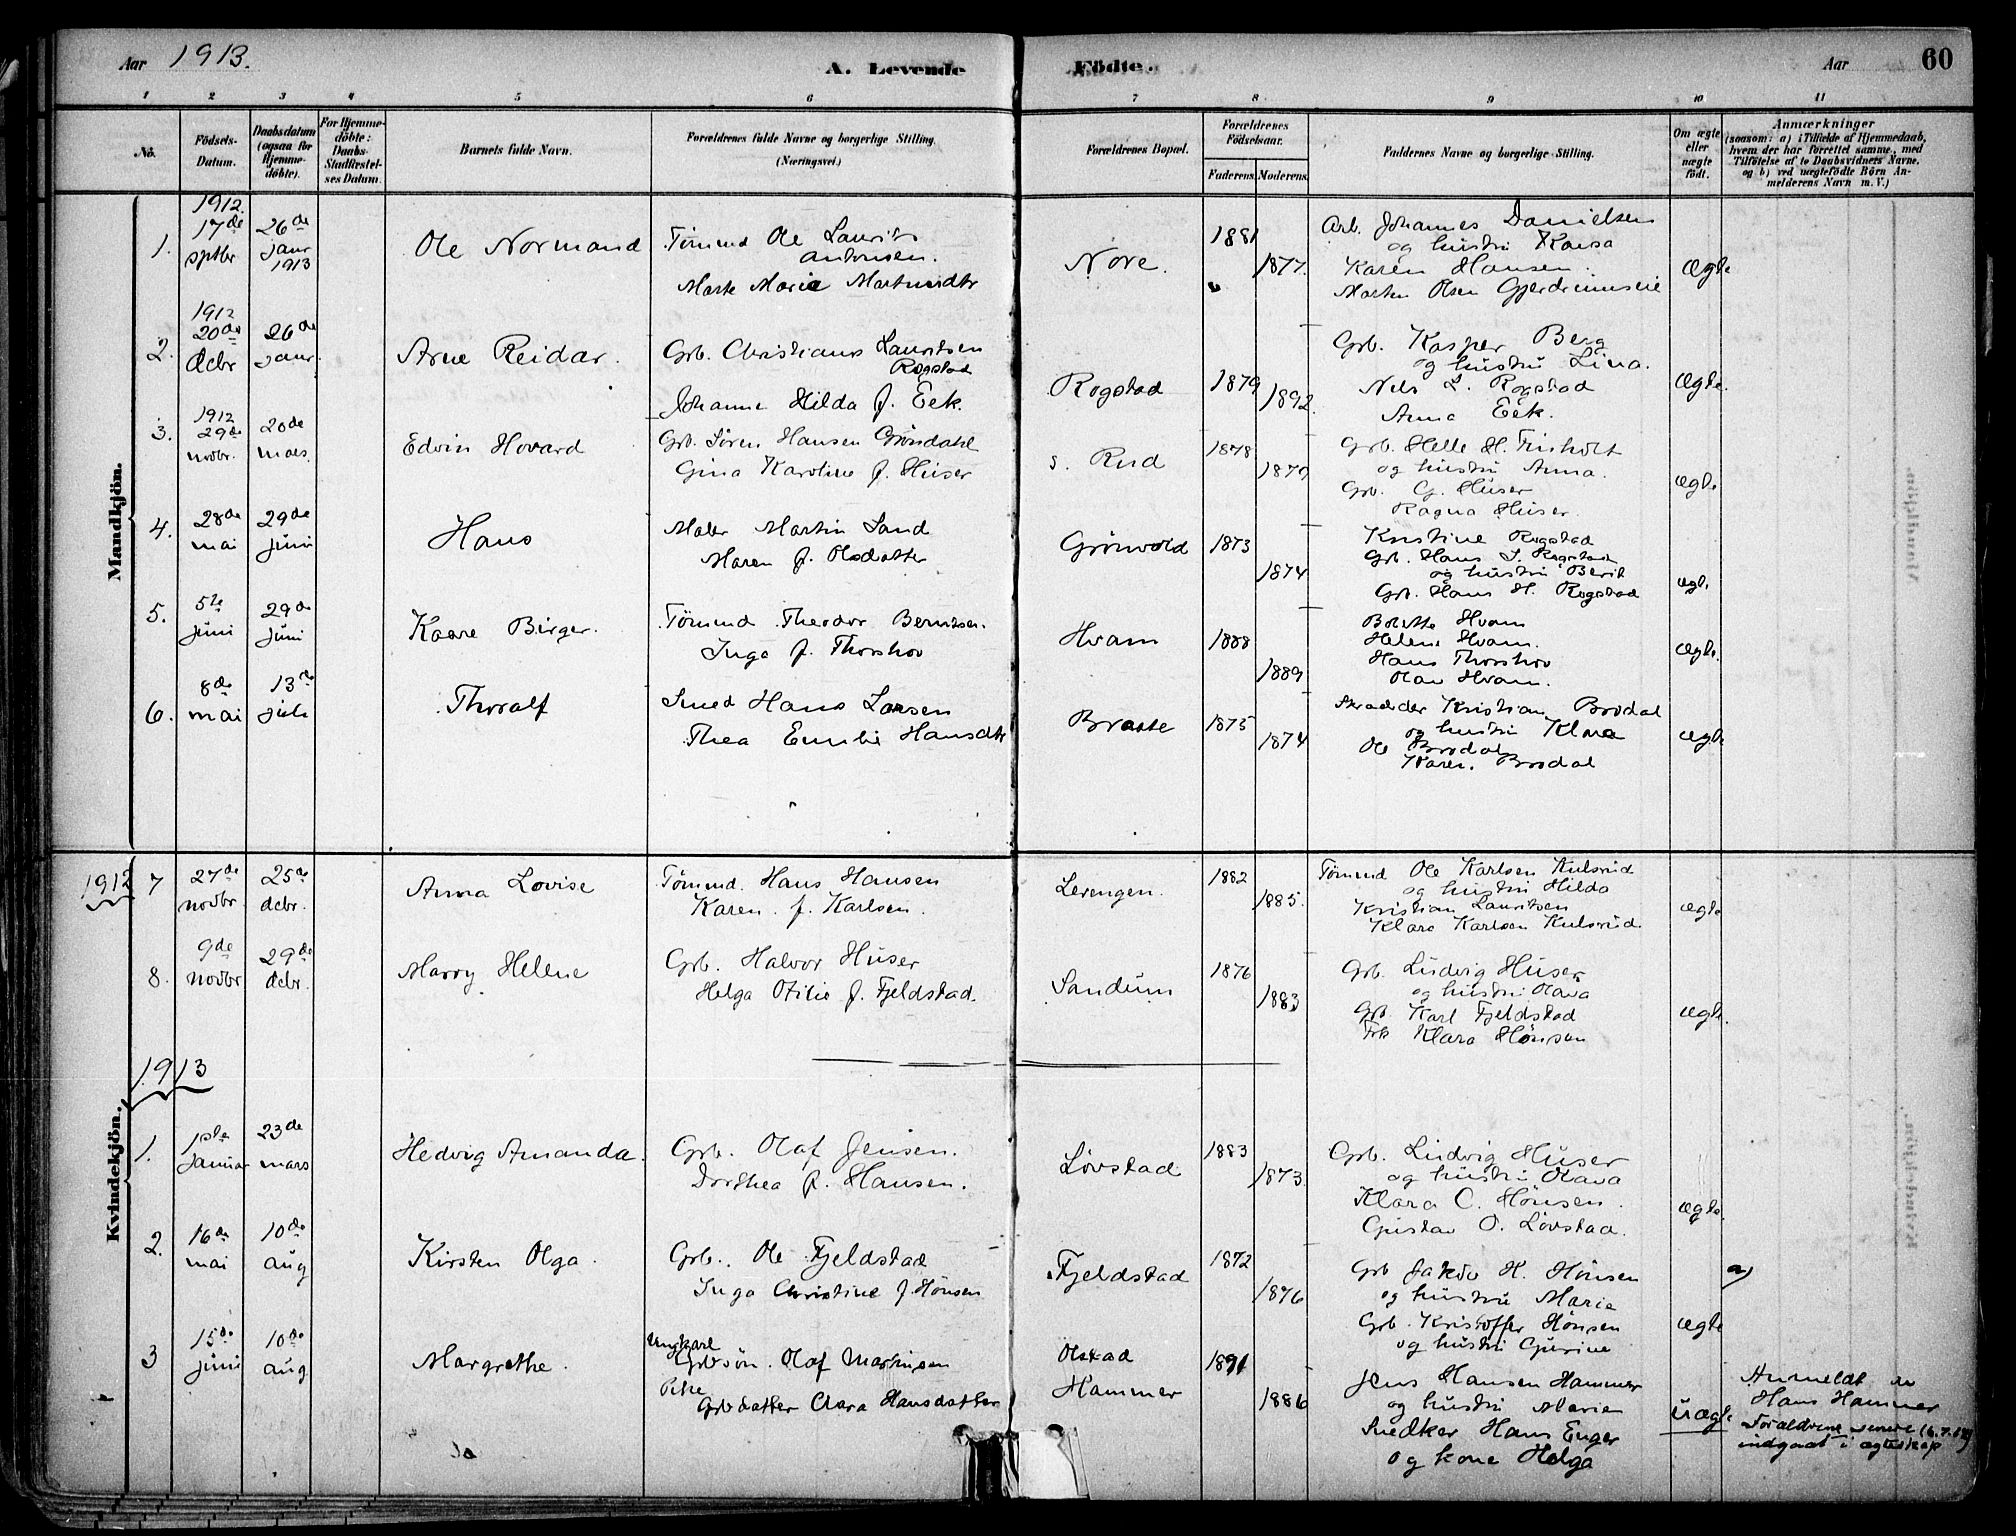 Aar 1913. A. Levende Födte. Aar 60
1 2 3 4 5 6 7 8 9 10 11
No.
Födsels-
Datum.
Daabsdatum
(ogsaa for
Hjemme-
döbte).
For Hjemme-
döbte:
Daabs-
Stadfæstel-
ses Datum.
Barnets fulde Navn.
Forældrenes fulde Navne og borgerlige Stilling.
(Næringsvei.)
Forældrenes Bopæl.
Forældrenes
Födselsaar.
Faderens. Moderens.
Faddernes Navne og borgerlige Stilling.
Om ægte
eller
uægte
födt.
Anmærkninger
(saasom: a) i Tilfælde af Hjemmedaab,
hvem der har forrettet samme, med
Tilföielse af to Daabsvidners Navne,
og b) ved uægtefödte Börn An-
melderens Navn m. V.)
Mandkjön.
1.
1912.
17de
sptbr
26de
Janr
1913
Ole Normand
Tømmd Ole Laurits
Antonsen.
Marte Marie Martinsdtr
Nore.
1881
1877.
Arb. Johannes Danielsen
og hustru Kaisa
Karen Hansen.
Marten Olsen Gjerdrumseie
Ægte
2.
1912
20de
dcbr
26de
Janr.
Arne Reidar.
Grb. Christians Lauritsen
Rogstad
Johanne Hilda f. Eek.
Rogstad
1879
1892.
Grb. Kasper Berg
og hustru Lina.
Nels L. Rogstad
Anna Eek.
Ægte.
3.
1912
29de
novbr.
20de
mars.
Edvin Hovard
Grb. Søren Hansen Grøndahl
Gina Karoline f. Huser
s. Rud
1878
1879
Grb. Helle H. Finholt
og hustru Anna.
Grb. G. Huser
Ragna Huser.
ægte
4.
28de
mai
29de
juni
Hans
Maler Martin Sand
Maren f. Olsdatter
Grønvold
1873
1874
Kristine Rogstad
Grb. Hans L. Rogstad
og hustru Berit
Grb. Hans H. Rogstad
ægte
5.
5te
juni
29de
juni
Kaare Birger.
Tømmd. Theodor Berntsen.
Inga f. Thorshov
Hvam
1888
1889
Bolette Hvam
Helene Hvam.
Hans Thorshov
Olav Hvam.
ægte.
6.
8de
mai
13de
juli
Thoralf
Smed Hans Larsen
Thea Emilie Hansdtr
Braate
1875
1874
Skrædder Kristian Brodal
og hustru Klara
Ole Brodal
Karen. Brodal
ægte
Kvindekjön.
1912
7
27de
novbr
25de
dcbr.
Anna Lovise
Tømmd. Hans Hansen
Karen. f. Karlsen.
Lerengen.
1882
1885.
Tømmd Ole Karlsen Kulsrud
og hustru Hilda
Kristian Lauritsen
Klara Karlsen Kulsrud
ægte
8.
9de
novbr
29de
dcbr.
Marry Helene
Grb. Halvor Huser
Helga Otilie f. Fjeldstad.
Sandum
1876
1883
Grb. Ludvig Huser
og hustru Olava
Grb. Karl Fjeldstad
Frk Klara Hønsen
ægte.
1913
1.
1ste
Januar
23de
mars
Hedvig Amanda.
Grb. Olaf Jensen.
Dorthea f. Hansen.
Løvstad
1883
1873.
Grb. Ludvig Huser
og hustru Olava
Klara C. Hønsen.
Gustav O. Løvstad.
ægte.
2.
16de
mai
10de
aug
Kirsten Olga.
Grb. Ole Fjeldstad
Inga Christine f. Hønsen
Fjeldstad
1872
1876
Grb Jakob H. Hønsen
og hustru Marie
Grb. Kristoffer Hønsen
og hustru Gurine
ægte
a)
3
15de
juni
10de
aug
Margrethe.
Ungkarl
Grbsøn. Olaf Martinsen
Pike
Grbdatter Clara Hansdatter
Olstad
Hammer
1891
1886
Jens Hansen Hammer
og hustru Marie
Snedker Hans Enger
og kone Helga
uægte
Anmeldt av
Hans Hammer
Forældrene senere
indgaat i ægteskap